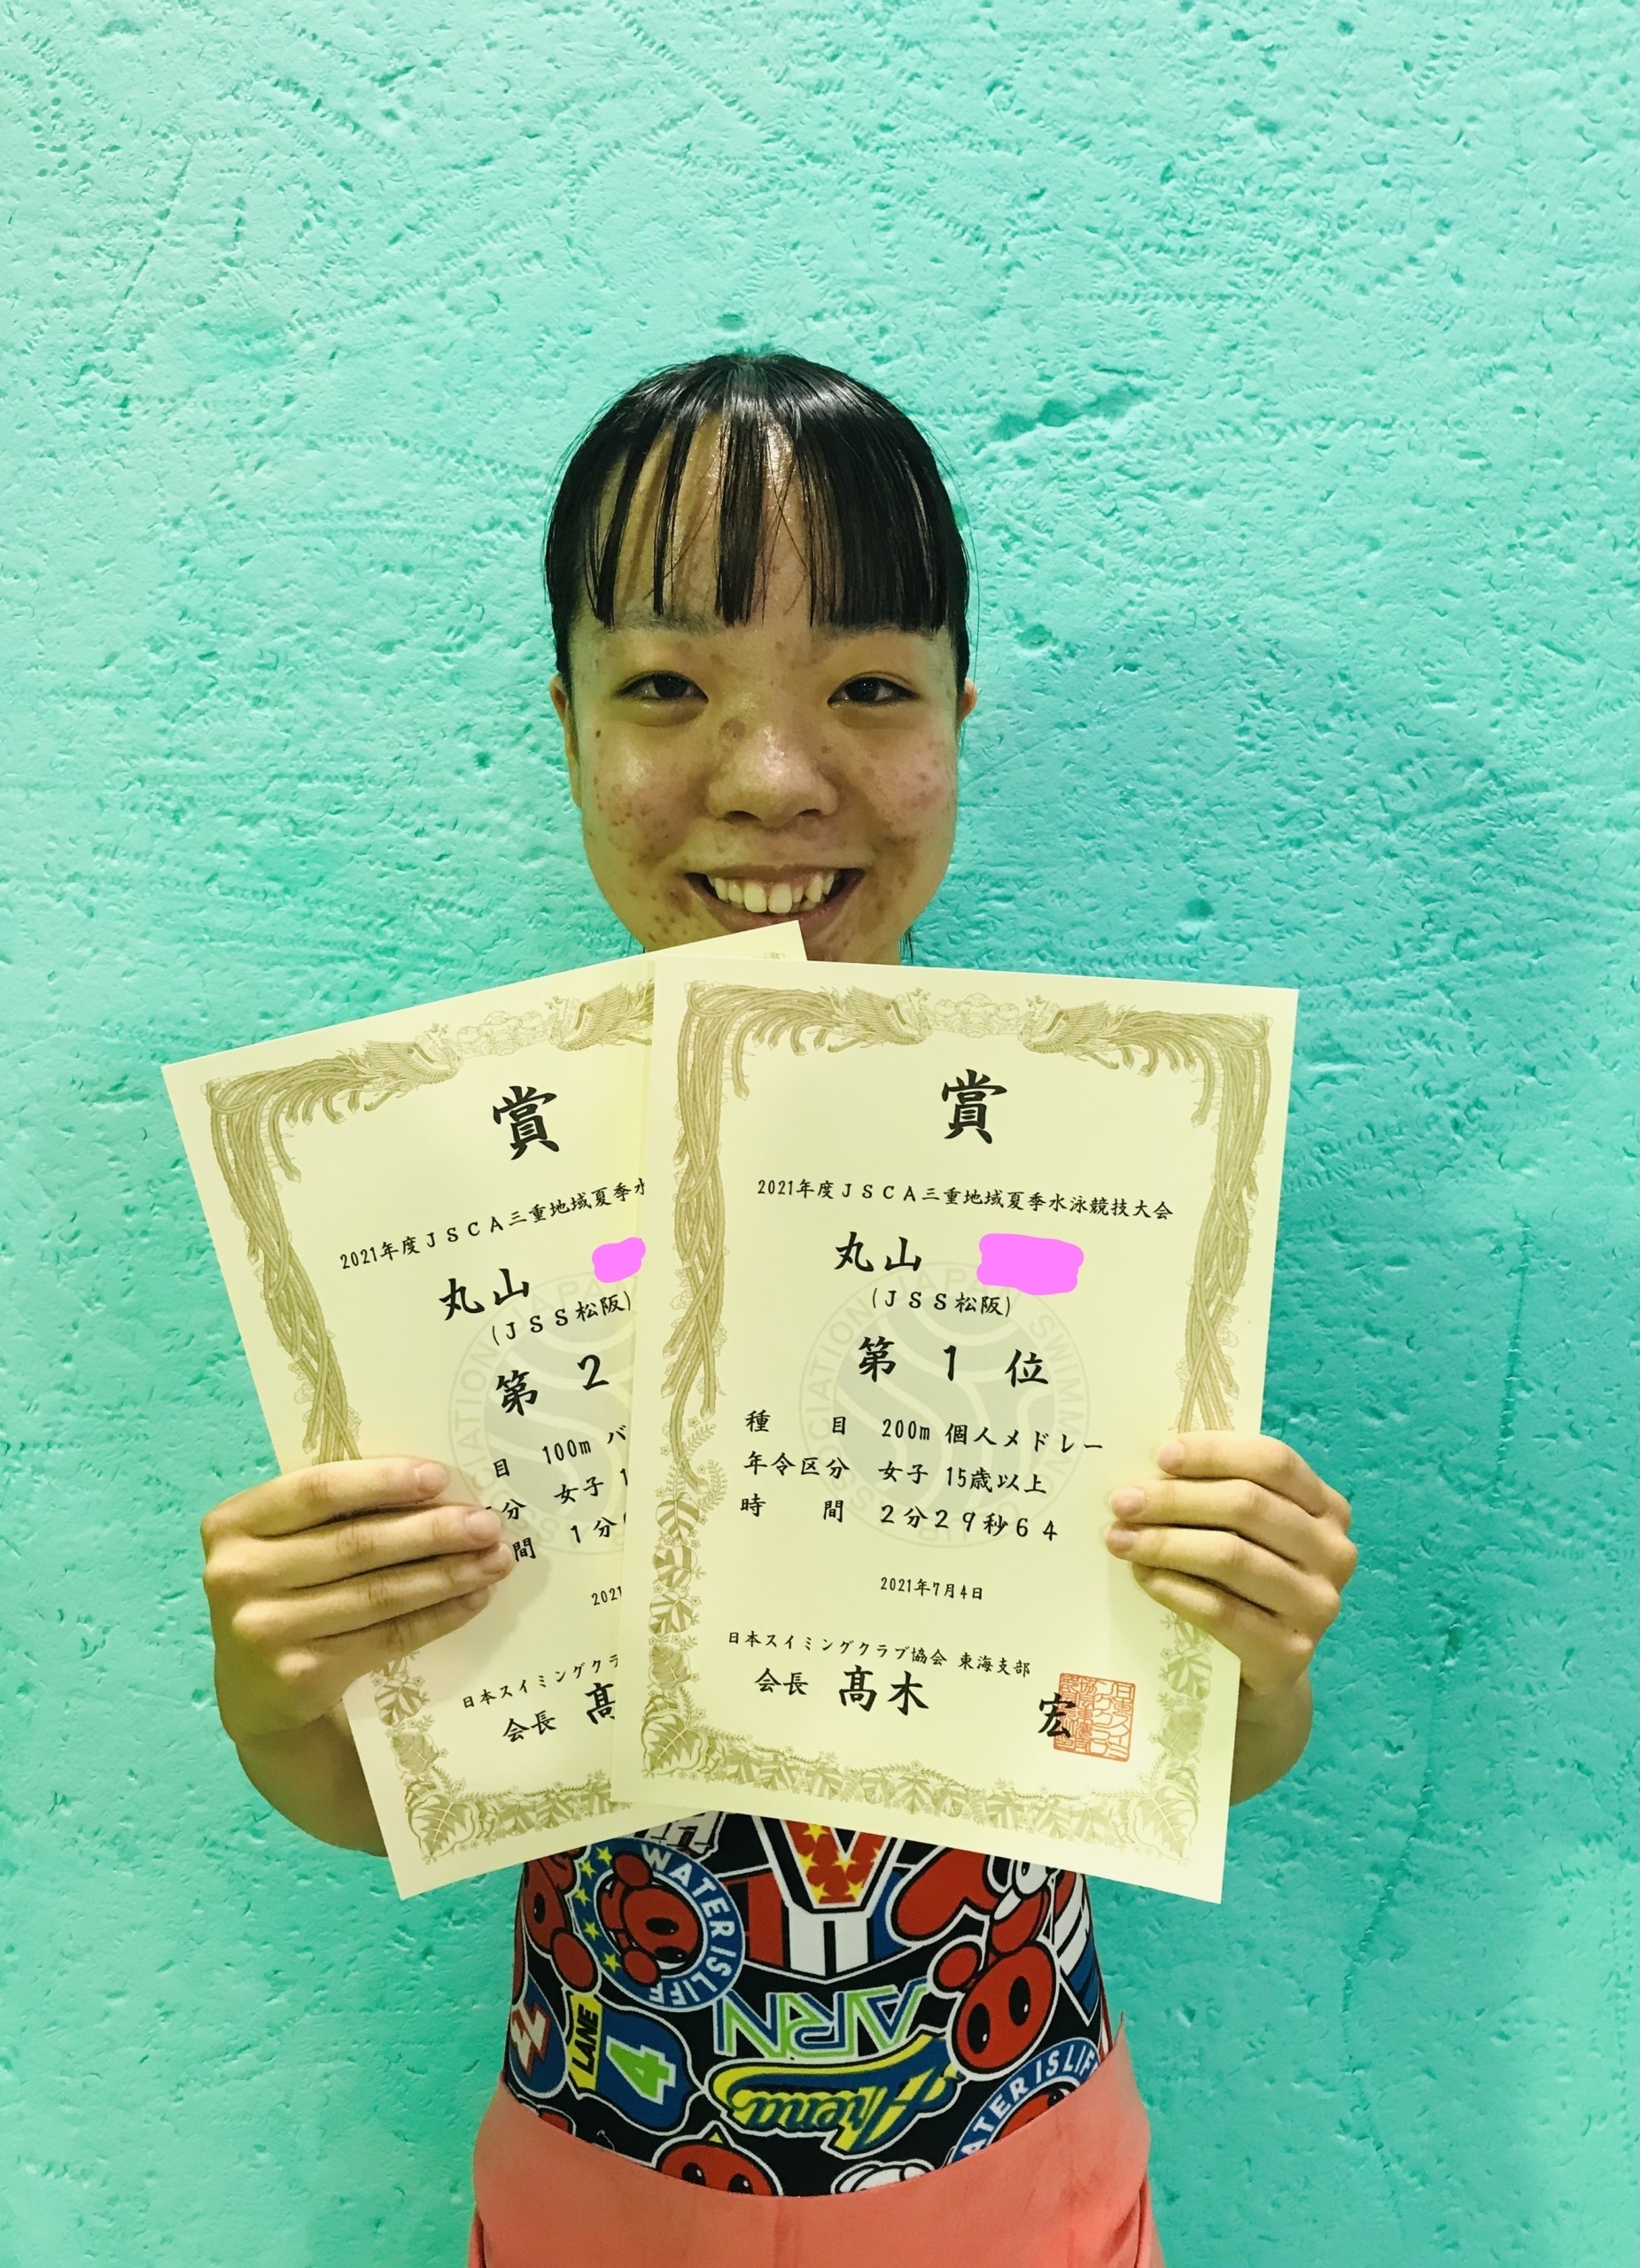 賞
2021年度JSCA三重地域夏季水
丸山
(JSS松阪)
第 2
目 100m バ
分 女子 1
間 1分
2021
日本スイミングクラ
会長 髙
賞
2021年度JSCA三重地域夏季水泳競技大会
丸山
(JSS松阪)
第 1 位
種 目 200m 個人メドレー
年令区分 女子 15歳以上
時 間 2分29秒64
2021年7月4日
日本スイミングクラブ協会 東海支部
会長 髙木 宏
WATER IS LIFE
ARN
LANE 4
Arena
WATER IS LIF